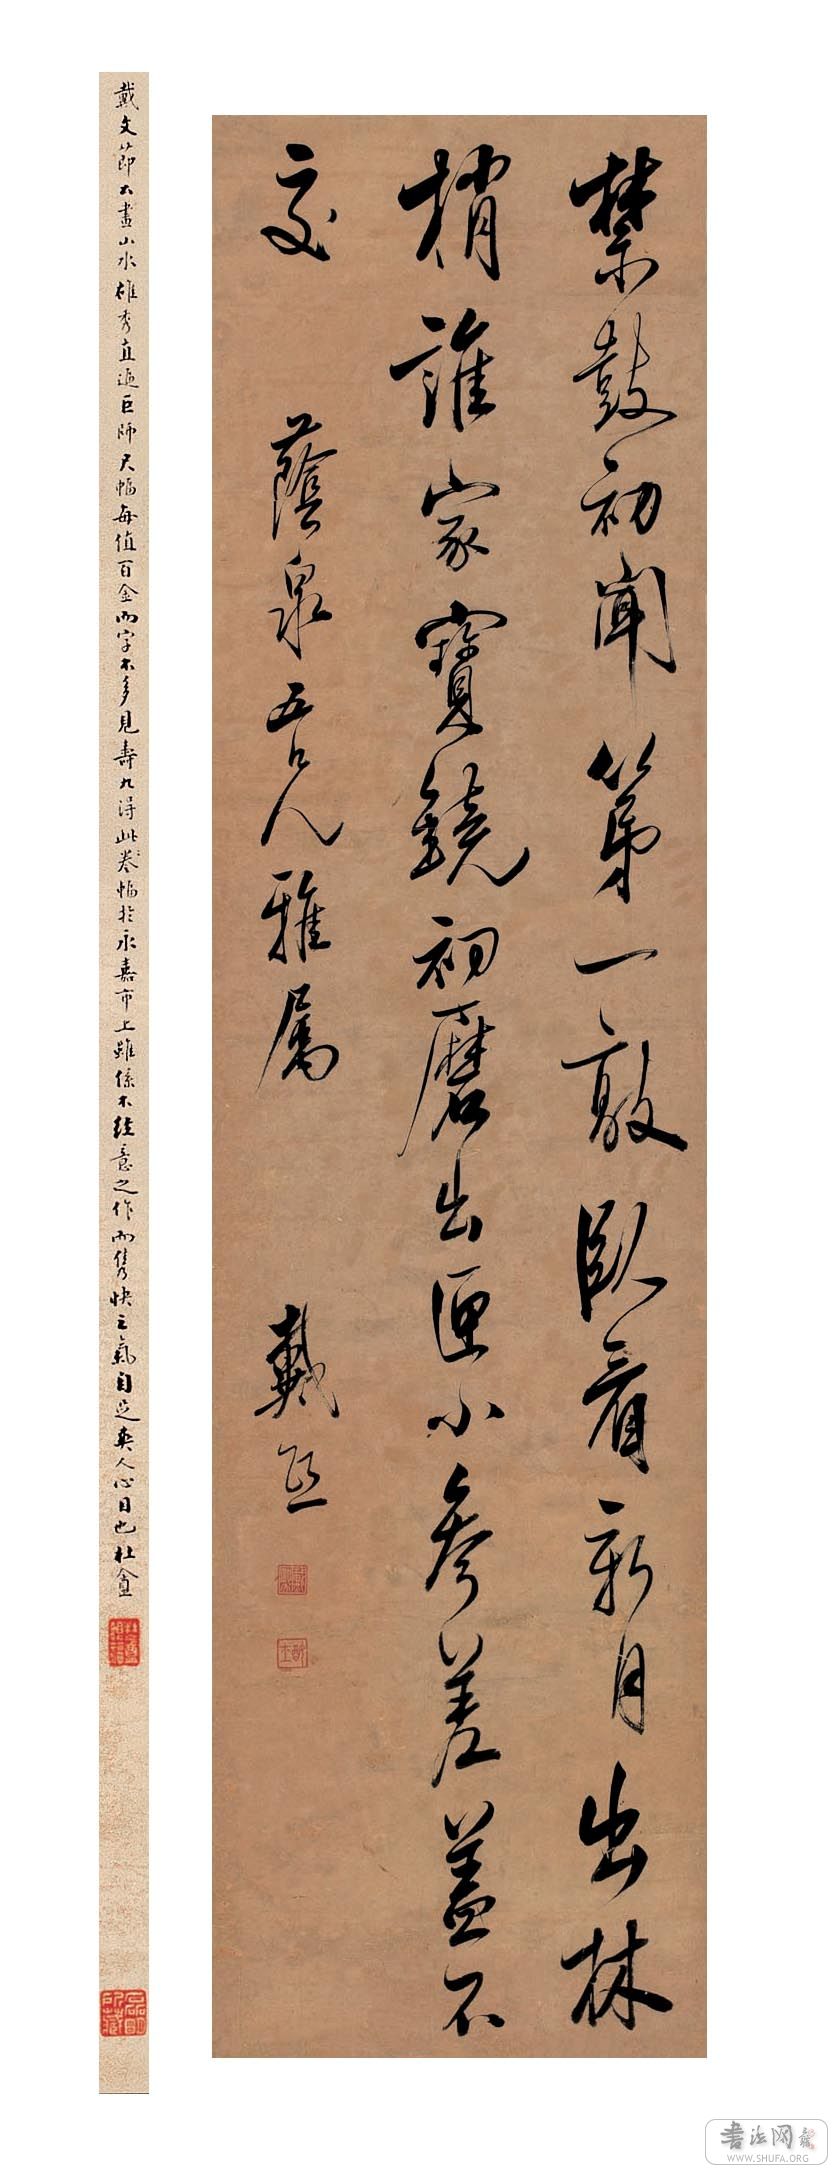 禁鼓初聞第一敲臥看新月出林
梢誰家寶鏡初磨出匣小參差蓋不
交
蔭泉五兄雅屬
戴熙
戴文節公畫山水雄秀直逼巨師尺幅每值百金而字不多見壽九得此卷幅於永嘉市上雖係不經意之作而雋快之氣自足爽人心目也杜盦
书法网
WWW.SHUFA.ORG